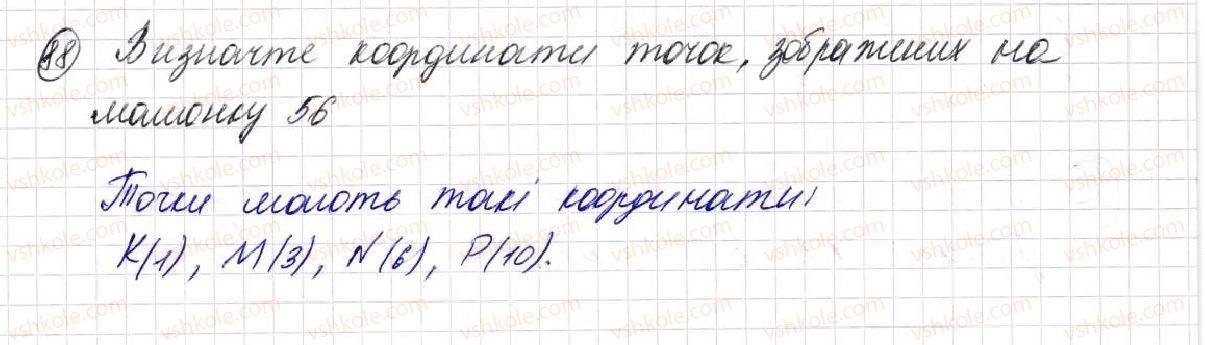 98 Визначте координати точок, зображених на
малюнку 56
Точки мають такі координати:
K(1), M(3), N(6), P(10).